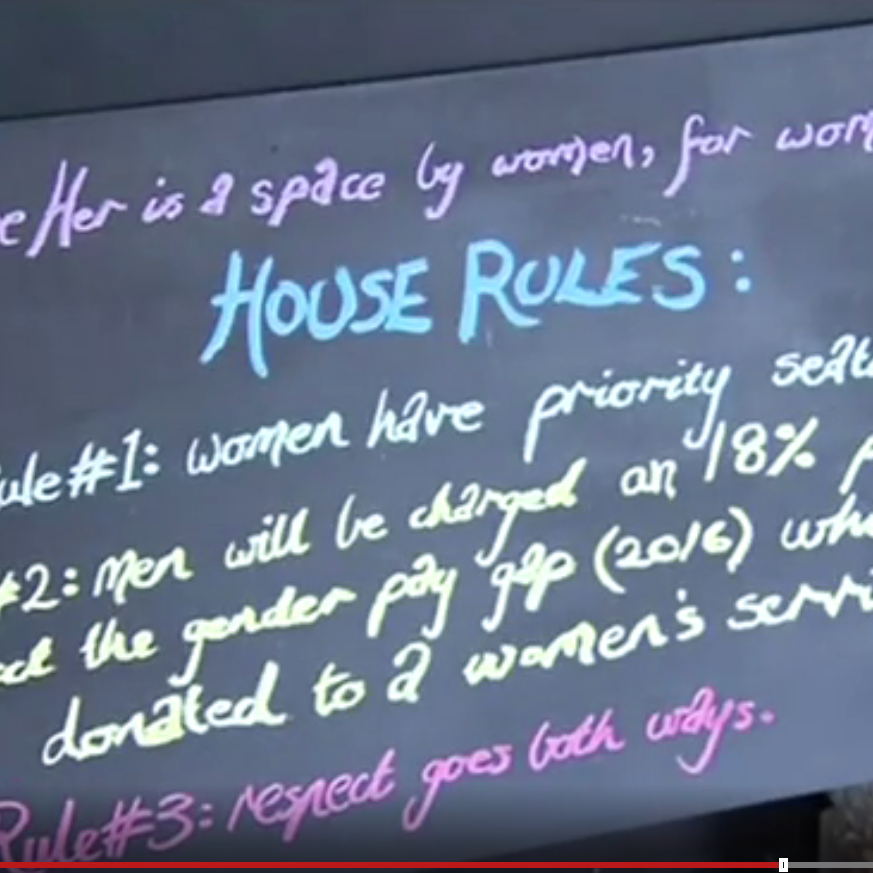 Her is a space by women, for
HOUSE RULES:
#1: women have priority
#2: men will be charged an 18%
the gender pay gap (2016)
donated to a women's
Rule#3: respect goes both ways.